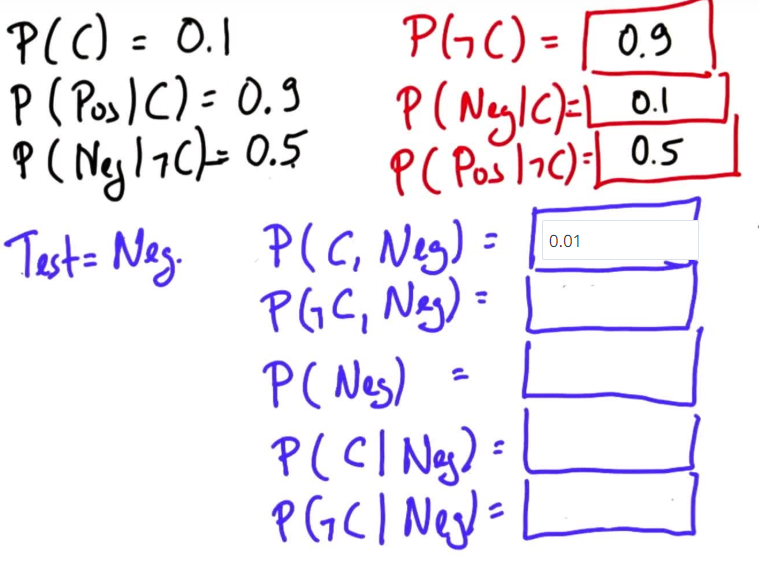 P(C) = 0.1 P(¬C) = 0.9
P(Pos|C) = 0.9 P(Neg|C) = 0.1
P(Neg|¬C) = 0.5 P(Pos|¬C) = 0.5
Test = Neg. P(C, Neg) = 0.01
P(¬C, Neg) =
P(Neg) =
P(C|Neg) =
P(¬C|Neg) =